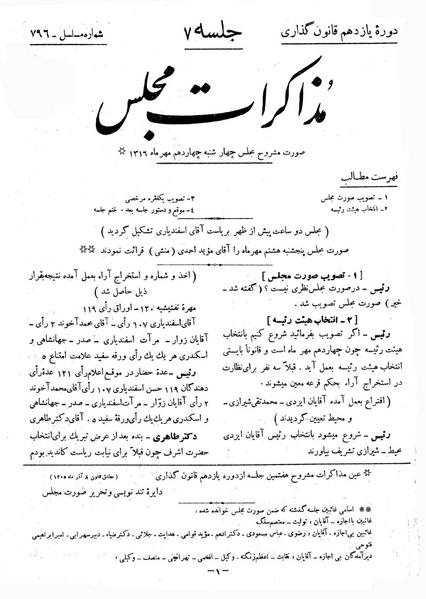 دورهٔ یازدهم قانون گذاری
جلسه ۷
شماره مسلسل - ۷۹۶
مذاکرات مجلس
صورت مشروح مجلس چهار شنبه چهاردهم مهر ماه ۱۳۱۶ *
فهرست مطالب
۱ - تصویب صورت مجلس
۲ - انتخاب هیئت رئیسه
۳ - تصویب یکفقره مرخصی
۴ - موقع و دستور جلسه بعد - ختم جلسه
( مجلس دو ساعت پیش از ظهر بریاست آقای اسفندیاری تشکیل گردید )
صورت مجلس پنجشنبه هشتم مهر ماه را آقای مؤید احدی (منشی) قرائت نمودند **
[ ۱ - تصویب صورت مجلس ]
رئیس - در صورت مجلس نظری نیست ؟ ( گفته شد -
خیر ) صورت مجلس تصویب شد .
[ ۲ - انتخاب هیئت رئیسه ]
رئیس - اگر تصویب بفرمائید شروع کنیم بانتخاب
هیئت رئیسه چون چهاردهم مهر ماه است و قانوناً بایستی
انتخاب هیئت رئیسه بعمل آید . قبلا سه نفر برای نظارت
در استخراج آراء بحکم قرعه معین میشوند .
( اقتراع بعمل آمده آقایان ایزدی - محمد تقی شیرازی -
و محیط تعیین گردیدند )
رئیس - شروع میشود بانتخاب رئیس آقایان ایزدی
محیط - شیرازی تشریف بیاورند
( اخذ و شماره و استخراج آراء بعمل آمده نتیجه بقرار
ذیل حاصل شد )
مهرهٔ تفتیشیه ۱۲۰ - اوراق رأی ۱۱۹
آقای اسفندیاری ۱۰۷ رأی - آقای محمد آخوند ۲ رأی -
آقایان زوار - مرآت اسفندیاری - صدر - جهانشاهی و
اسکندری هر یك یك رأی ورقه سفید علامت امتناع ۵
رئیس - عدۀ حضار در موقع اعلام رأی ۱۲۱ عدۀ رأی
دهندگان ۱۱۹ حسن اسفندیاری ۱۰۷ رأی آقای محمد آخوند
۲ رأی آقایان زوار - مرآت اسفندیاری - صدر - جهانشاهی
و اسکندری هر یك یك رأی ورقه سفید ۵ . آقای دکتر طاهری
دکتر طاهری - بنده بعد از عرض تبریك برای انتخاب
حضرت اشرف چون قبلاً برای نیابت ریاست کاندید بودم
* عین مذاکرات مشروح هفتمین جلسه از دوره یازدهم قانون گذاری
( مطابق قانون ۸ آذر ماه ۱۳۰۵ )
دایرهٔ تند نویسی و تحریر صورت مجلس
** اسامی غائبین جلسه گذشته که ضمن صورت مجلس خوانده شده :
غائبین با اجازه - آقایان : تولیت - معتصم سنگ
غائبین بی اجازه - آقایان : رضوی - عباس مسعودی - دکتر ادهم - مؤید قوامی - هدایت - جلائی - دکتر ضیاء - دبیر سهرابی - امیر ابراهیمی
فتوحی
دیر آمدگان بی اجازه - آقایان : نقابت - اعظم زنگنه - وکیل - افخمی - تهرانچی - منصف - وکیلی .
- ۱ -